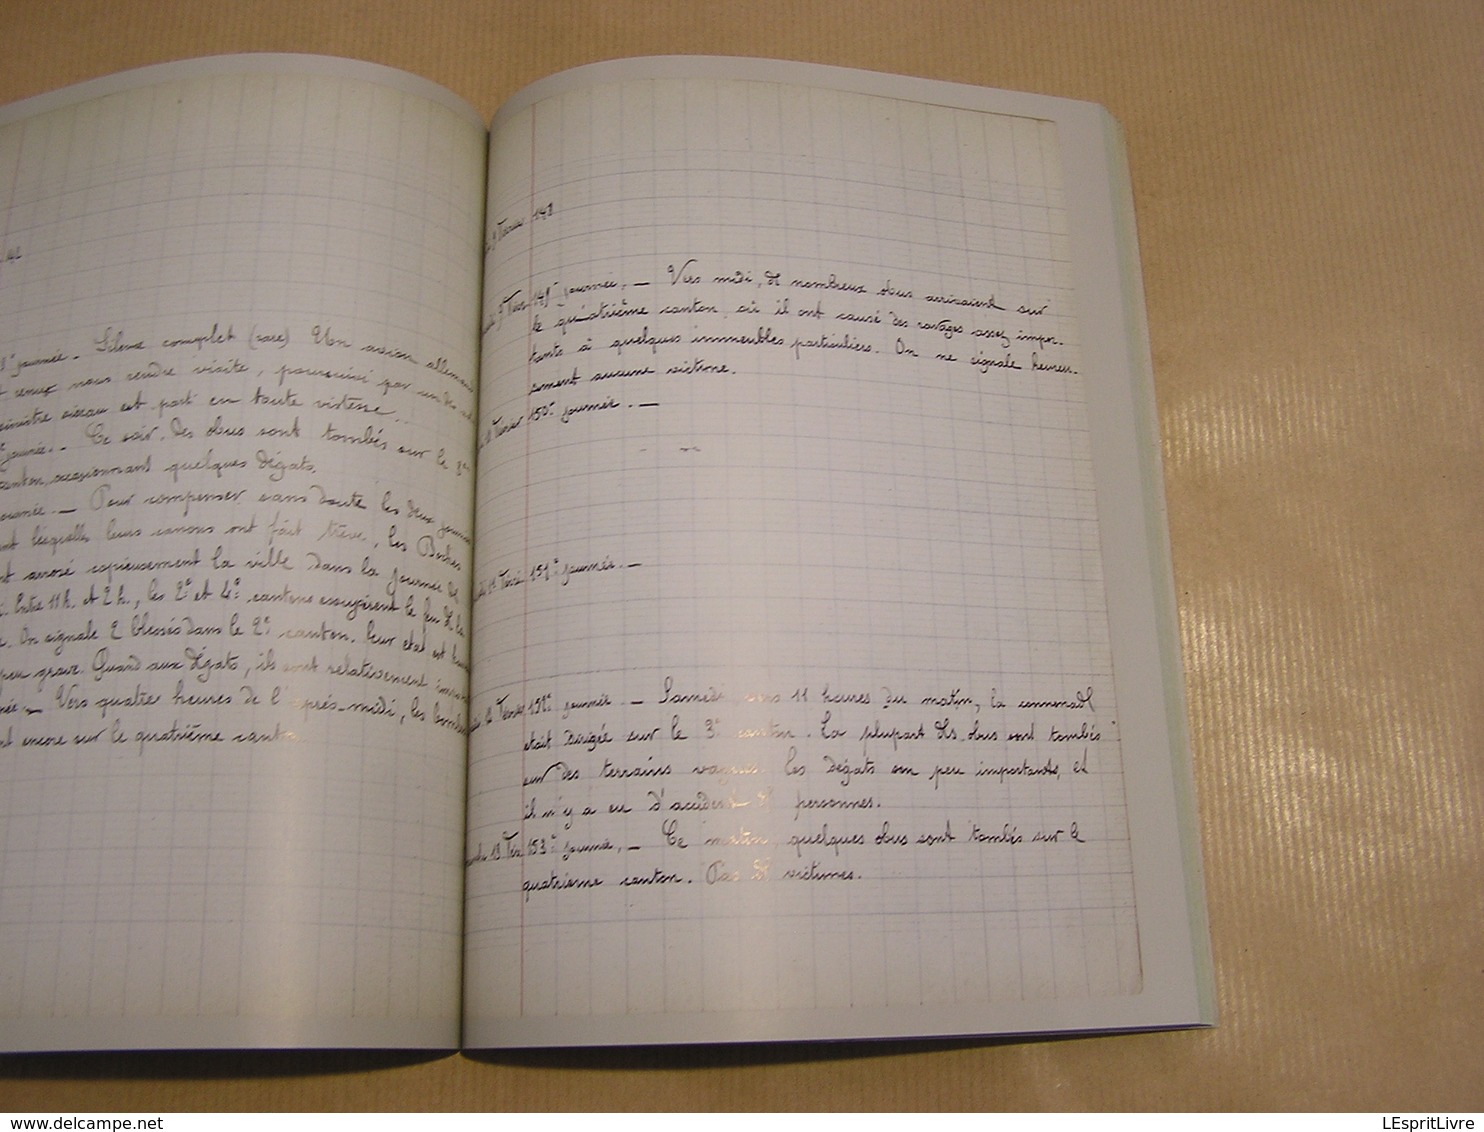 journée. - Silence complet (rare) Un avion allemand
venu nous rendre visite, poursuivi par un des
sinistre oiseau est parti en toute vistesse..
journée. - Ce soir, des obus sont tombés sur le 3e
canton, occasionnant quelques dégats.
journée - Pour compenser sans doute les deux journées
lesquelles leurs canons ont fait trêve, les Boches
arrosé copieusement la ville dans la journée de
Entre 11h. et 2h., les 2e et 4e cantons essuyèrent le feu de la
On signale 2 blessés dans le 2e canton. Leur état est
peu grave. Quand aux dégats, ils sont relativement
- Vers quatre heures de l'après-midi, les bombes
encore sur le quatrième canton
9 Février 148
Févr. 149e journée. - Vers midi, de nombreux obus arrivaient sur
le quatrième canton, où il ont causé des ravages assez impor-
tants à quelques immeubles particuliers. On ne signale heureu-
sement aucune victime.
Février 150e journée. -
11 Févr. 151e journée. -
12 Février 152e journée - Samedi vers 11 heures du matin, la cannonade
était dirigée sur le 3e canton. La plupart des obus sont tombés
sur des terrains vagues. Les dégats peu importants, et
il n'y a eu d'accident de personnes.
13 Févr. 153e journée, - Ce matin quelques obus sont tombés sur le
quatrième canton. Pas de victimes.
LEspritLivre